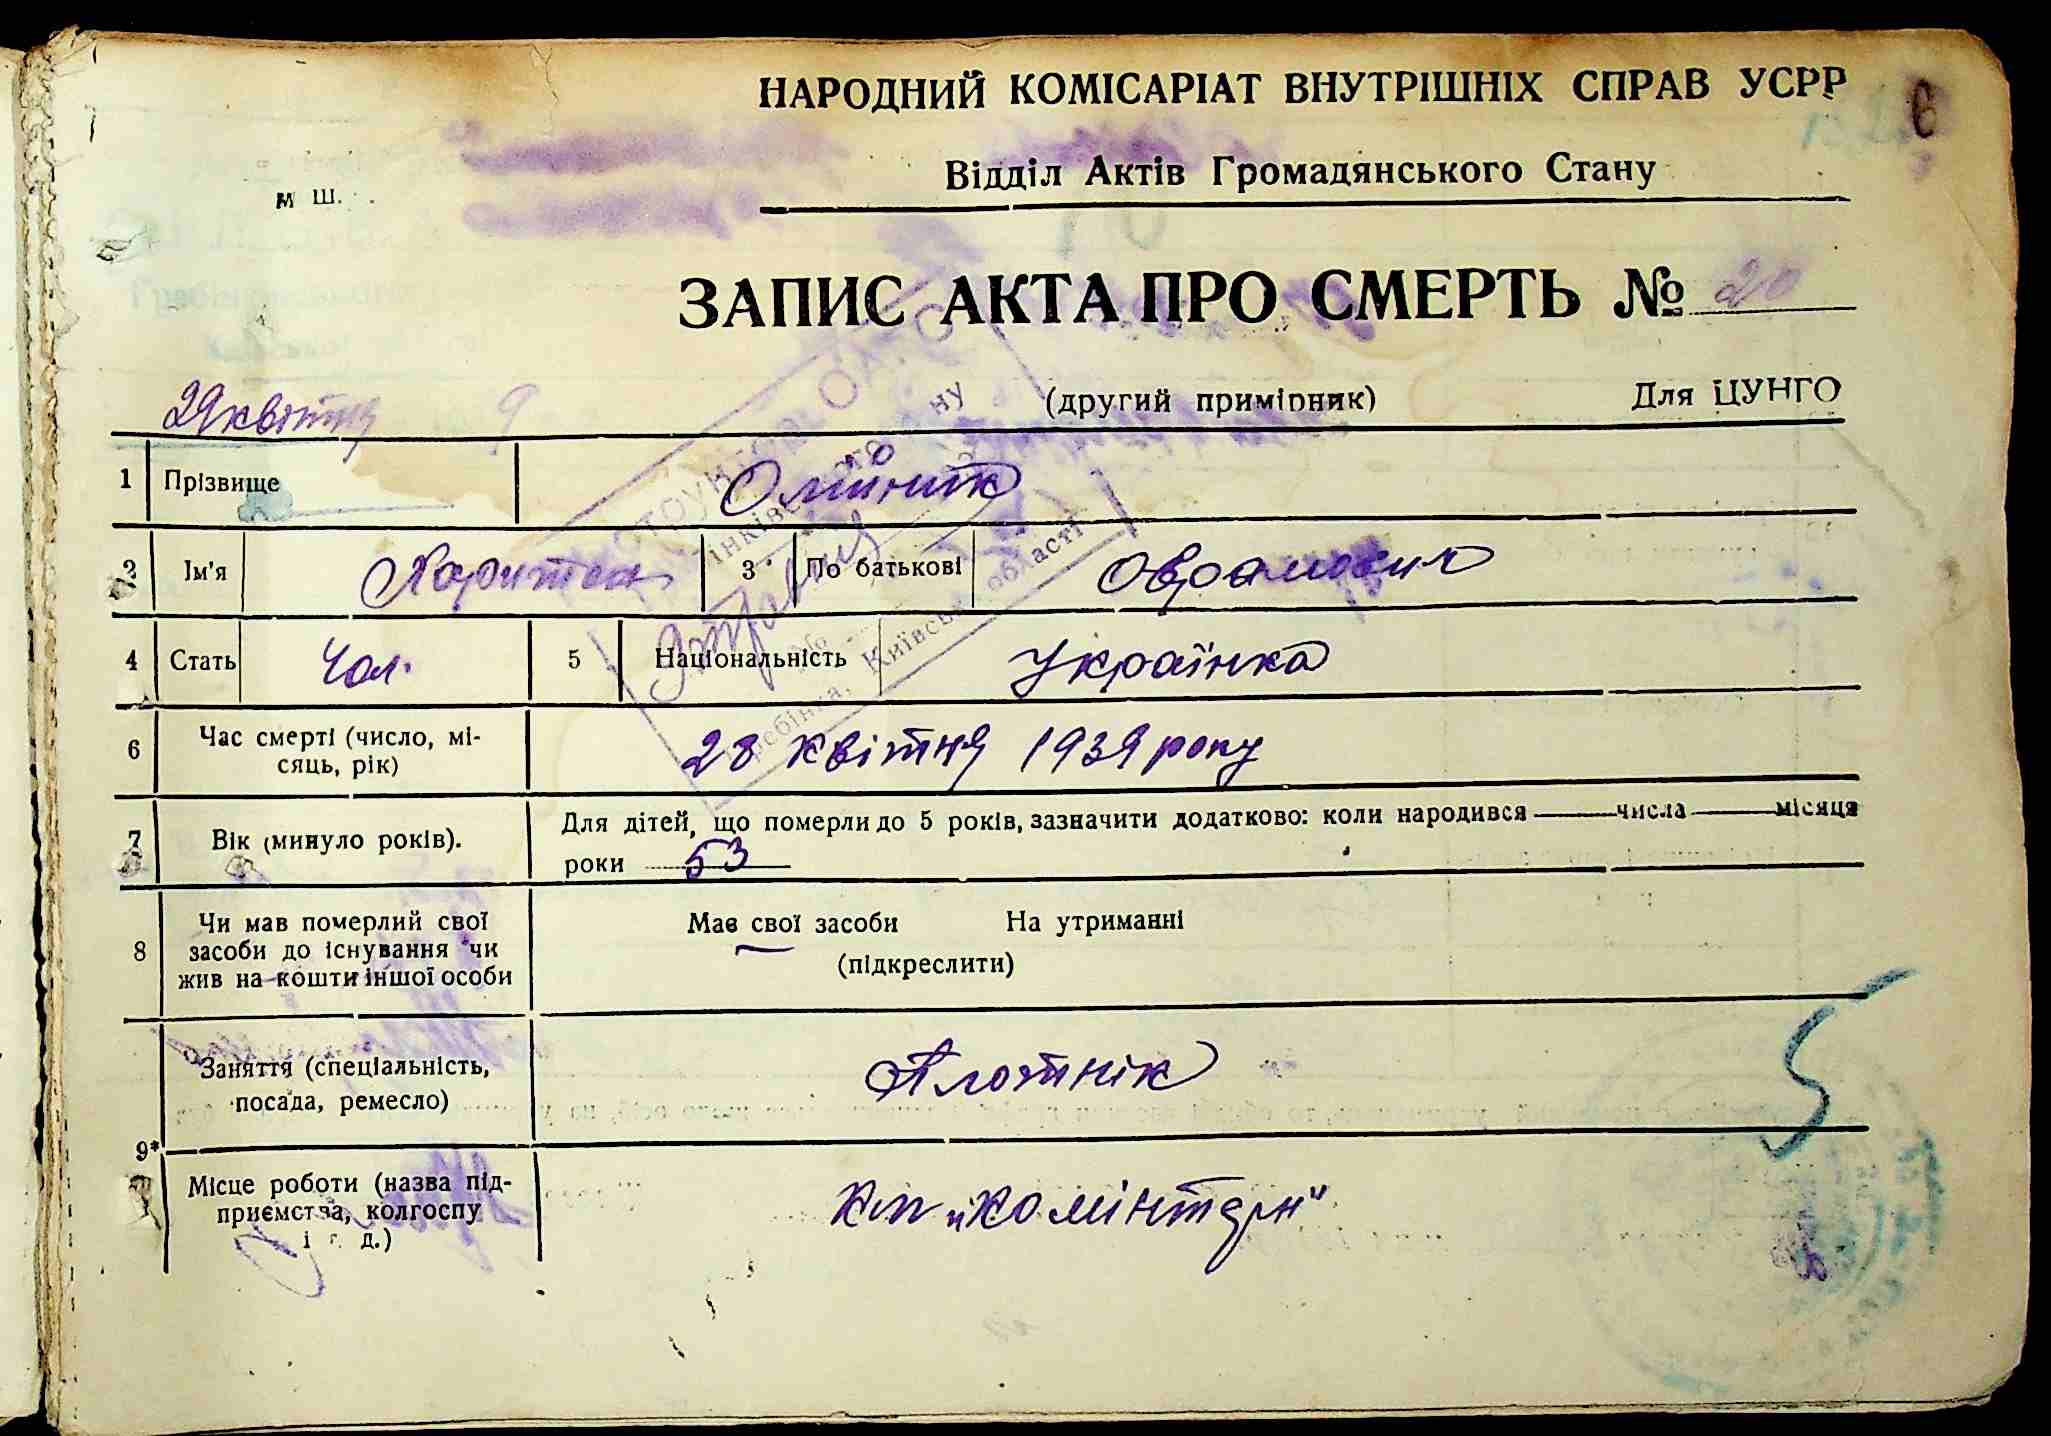 НАРОДНИЙ КОМІСАРІАТ ВНУТРІШНІХ СПРАВ УСРР
6
Відділ Актів Громадянського Стану
м Ш.
ЗАПИС АКТА ПРО СМЕРТЬ № 20
29 квітня 9 (другий примірник) Для ЦУНГО
1 Прізвище Олійник
2 Ім'я Харитон 3 По батькові Оврамович
4 Стать Чол. 5 Національність Українка
Київської області
6 Час смерті (число, мі-
сяць, рік) 28 квітня 1939 року
7 Вік (минуло років). Для дітей, що померли до 5 років, зазначити додатково: коли народився числа місяця
роки 53
8 Чи мав померлий свої
засоби до існування чи
жив на кошти іншої особи
Має свої засоби На утриманні
(підкреслити)
Заняття (спеціальність,
посада, ремесло) Плотнік
5
9*
Місце роботи (назва під-
приємства, колгоспу
і т. д.)
Кт „Комінтерн"